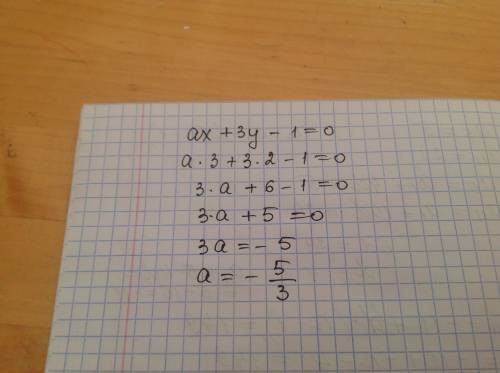 ax + 3y - 1 = 0
a · 3 + 3 · 2 - 1 = 0
3 · a + 6 - 1 = 0
3 · a + 5 = 0
3a = - 5
a = - 5/3